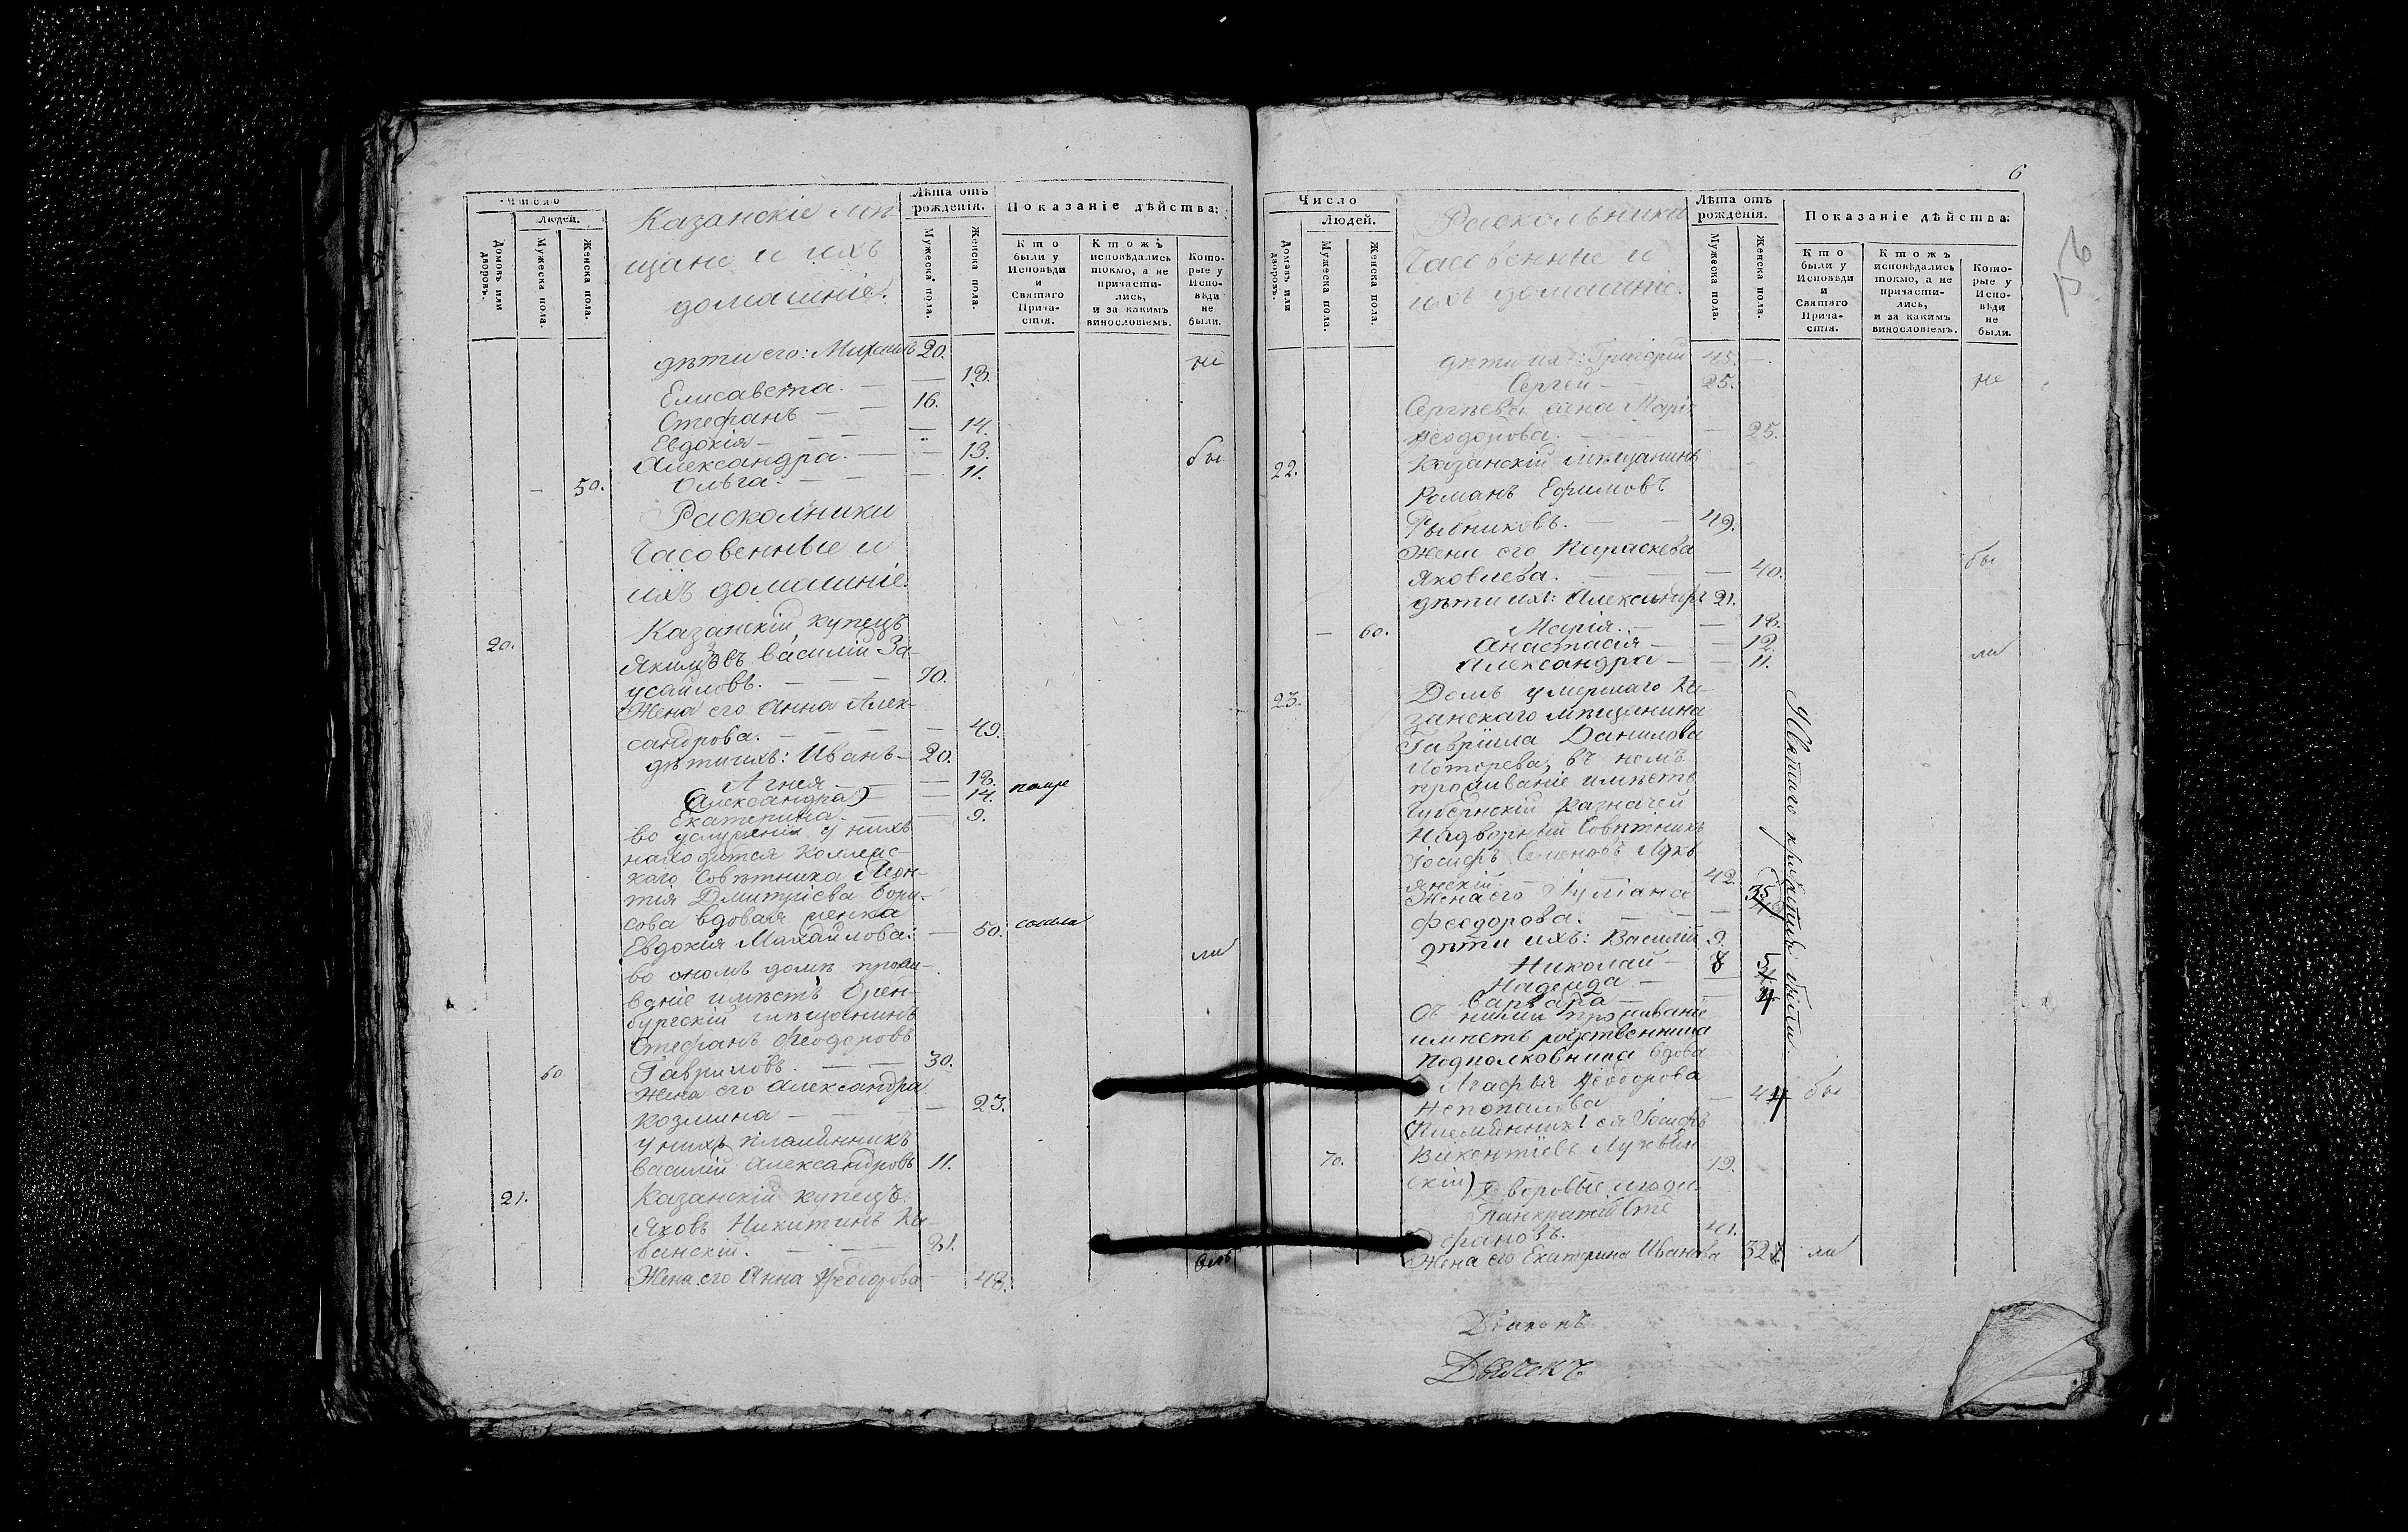 Число
Людей.
Домовъ или дворовъ.
Мужеска пола.
Женска пола.
Казанскіе мѣ-
щане и ихъ
домашніе.
Лѣта отъ рожденія.
Мужеска пола.
Женска пола.
Показаніе дѣйства:
Кто были у Исповѣди и Святаго Прича-стія.
Ктожъ исповѣдались токмо, а не причасти-лись, и за какимъ винословіемъ.
Кото-рые у Испо-вѣди не были.
дѣти его: Михаилъ 20. не
Елисавета. — — 18.
Стефанъ — — 16.
Евдокія — — — 14.
Александра. — — 13. бы
— 50. Ольга. — — — 11.
Расколники
Часовенные и
ихъ домашніе.
20. Казанскій купецъ
Василій За-
усайловъ. — — — 70.
Жена его Анна Алек-
сандрова. — — — — 49.
дѣти ихъ: Иванъ — 20.
Агнея — — 18.
(Александра) — — 14.
Екатерина. — — 9.
во у нихъ
находится Коллеж-
каго Совѣтника Леон-
тія Дмитріева Бори-
сова вдовая женка
Евдокія Михайлова: — 50.
ли
во ономъ домѣ прожи-
ваніе имѣетъ Орен-
бургскій мѣщанинъ
Стефанъ Феодоровъ
60 Гавриловъ. — — 30.
Жена его Александра
Козмина — — — — 23.
у нихъ племянникъ
Василій Александровъ 11.
21. Казанскій купецъ
Яковъ Никитинъ Ка-
банскій. — — — 81.
Жена его Анна Феодорова — 48.
6
Число
Людей.
Домовъ или дворовъ.
Мужеска пола.
Женска пола.
Раскольники
Часовенные и
ихъ домашніе.
Лѣта отъ рожденія.
Мужеска пола.
Женска пола.
Показаніе дѣйства:
Кто были у Исповѣди и Святаго Прича-стія.
Ктожъ исповѣдались токмо, а не причасти-лись, и за какимъ винословіемъ.
Кото-рые у Испо-вѣди не были.
дѣти ихъ: Григорій 45. —
Сергей — 25. не
Сергѣева жена Марія
Феодорова. — — 25.
22. Казанскій мѣщанинъ
Романъ Ефимовъ
Рыбниковъ. — — 49.
Жена его Параскева бы
Яковлева. — — — 40.
дѣти ихъ: Александръ 21.
— 60. Марія. — — 18.
Анастасія — — 12.
Александра — — 11. ли
23. Домъ умершаго Ка-
занскаго мѣщанина
Гавріила Данилова
въ немъ
проживаніе имѣетъ
Губернскій Казначей
Надворный Совѣтникъ
Іосифъ Семеновъ Лукь
янскій — 42.
Жена его Іуліана 35
Феодорова. — — —
дѣти ихъ: Василій 9.
Николай — 8
Надежда —
Варвара — — 4
Съ ними проживаніе
имѣетъ родственница
Подполковница вдова
Агафья Феодорова
— бы
Племянникъ ея Іосифъ
70. Викентіевъ Лукьян
скій) 19.
Дворовые люди.
Панкратій Сте
фановъ. 41.
Жена его Екатерина Иванова 32 ли
Дьяконъ
Дьячекъ